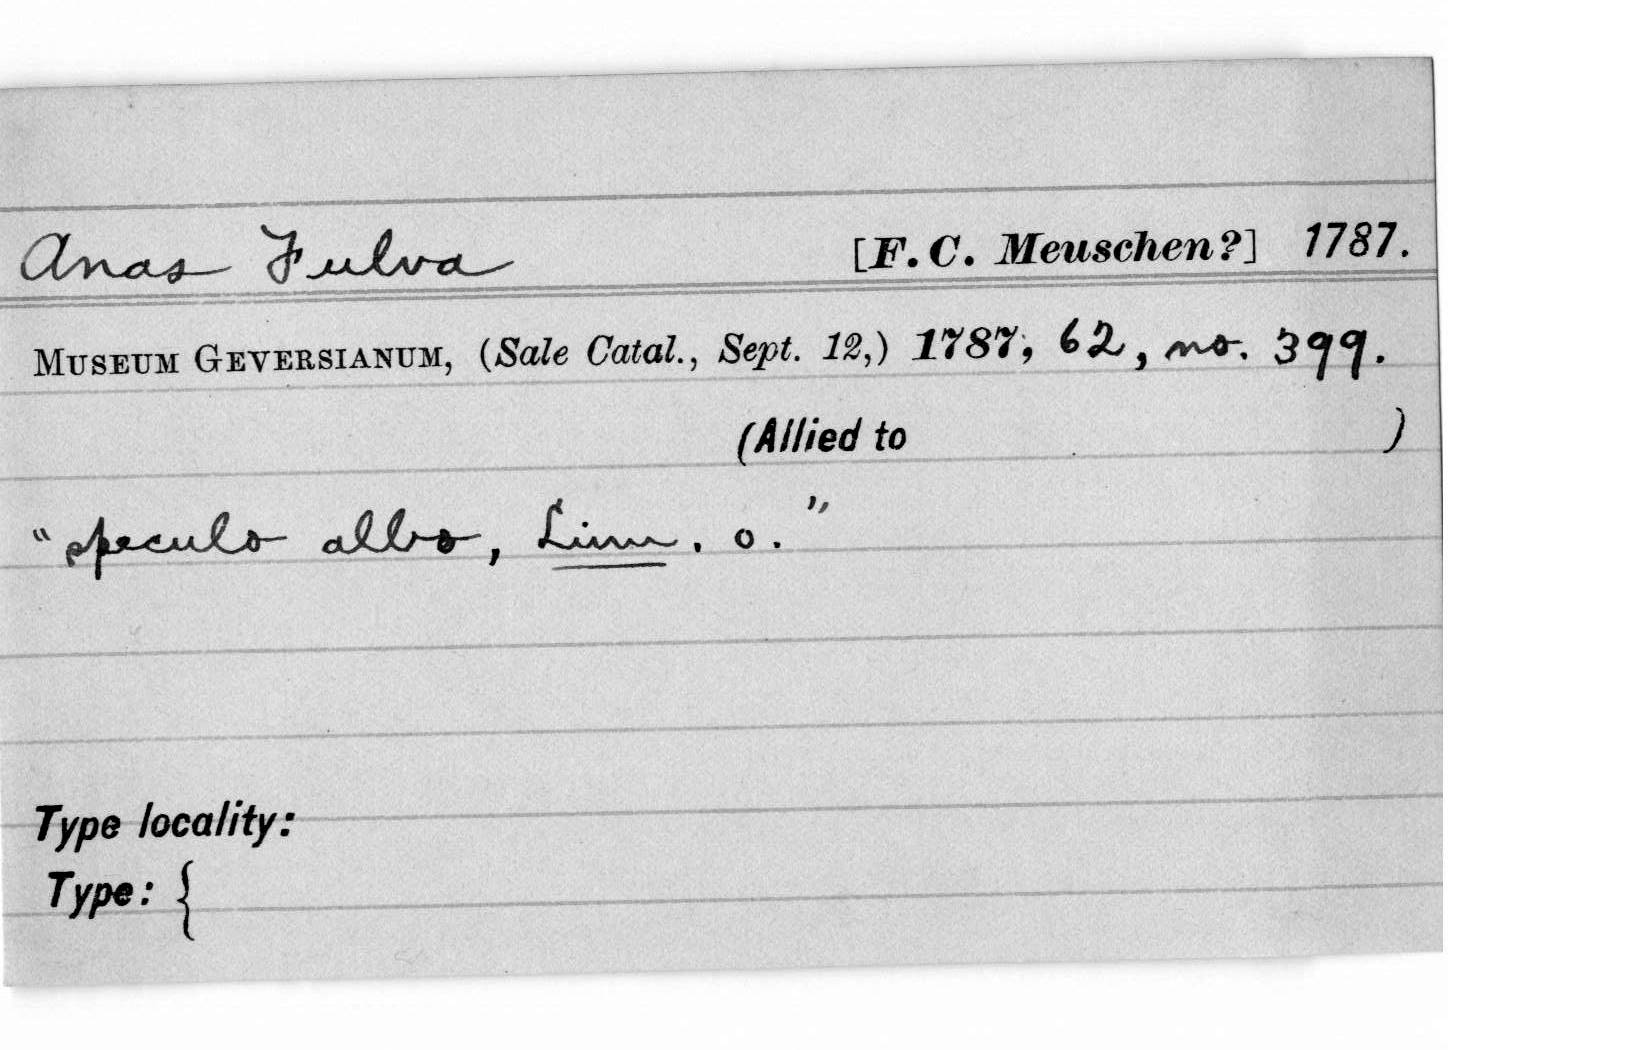 Anas Fulva [F. C. Meuschen?] 1787.
Museum Geversianum, (Sale Catal., Sept. 12,) 1787, 62, no. 399.
(Allied to )
"speculo albo, Linn. o."
Type locality:
Type: {